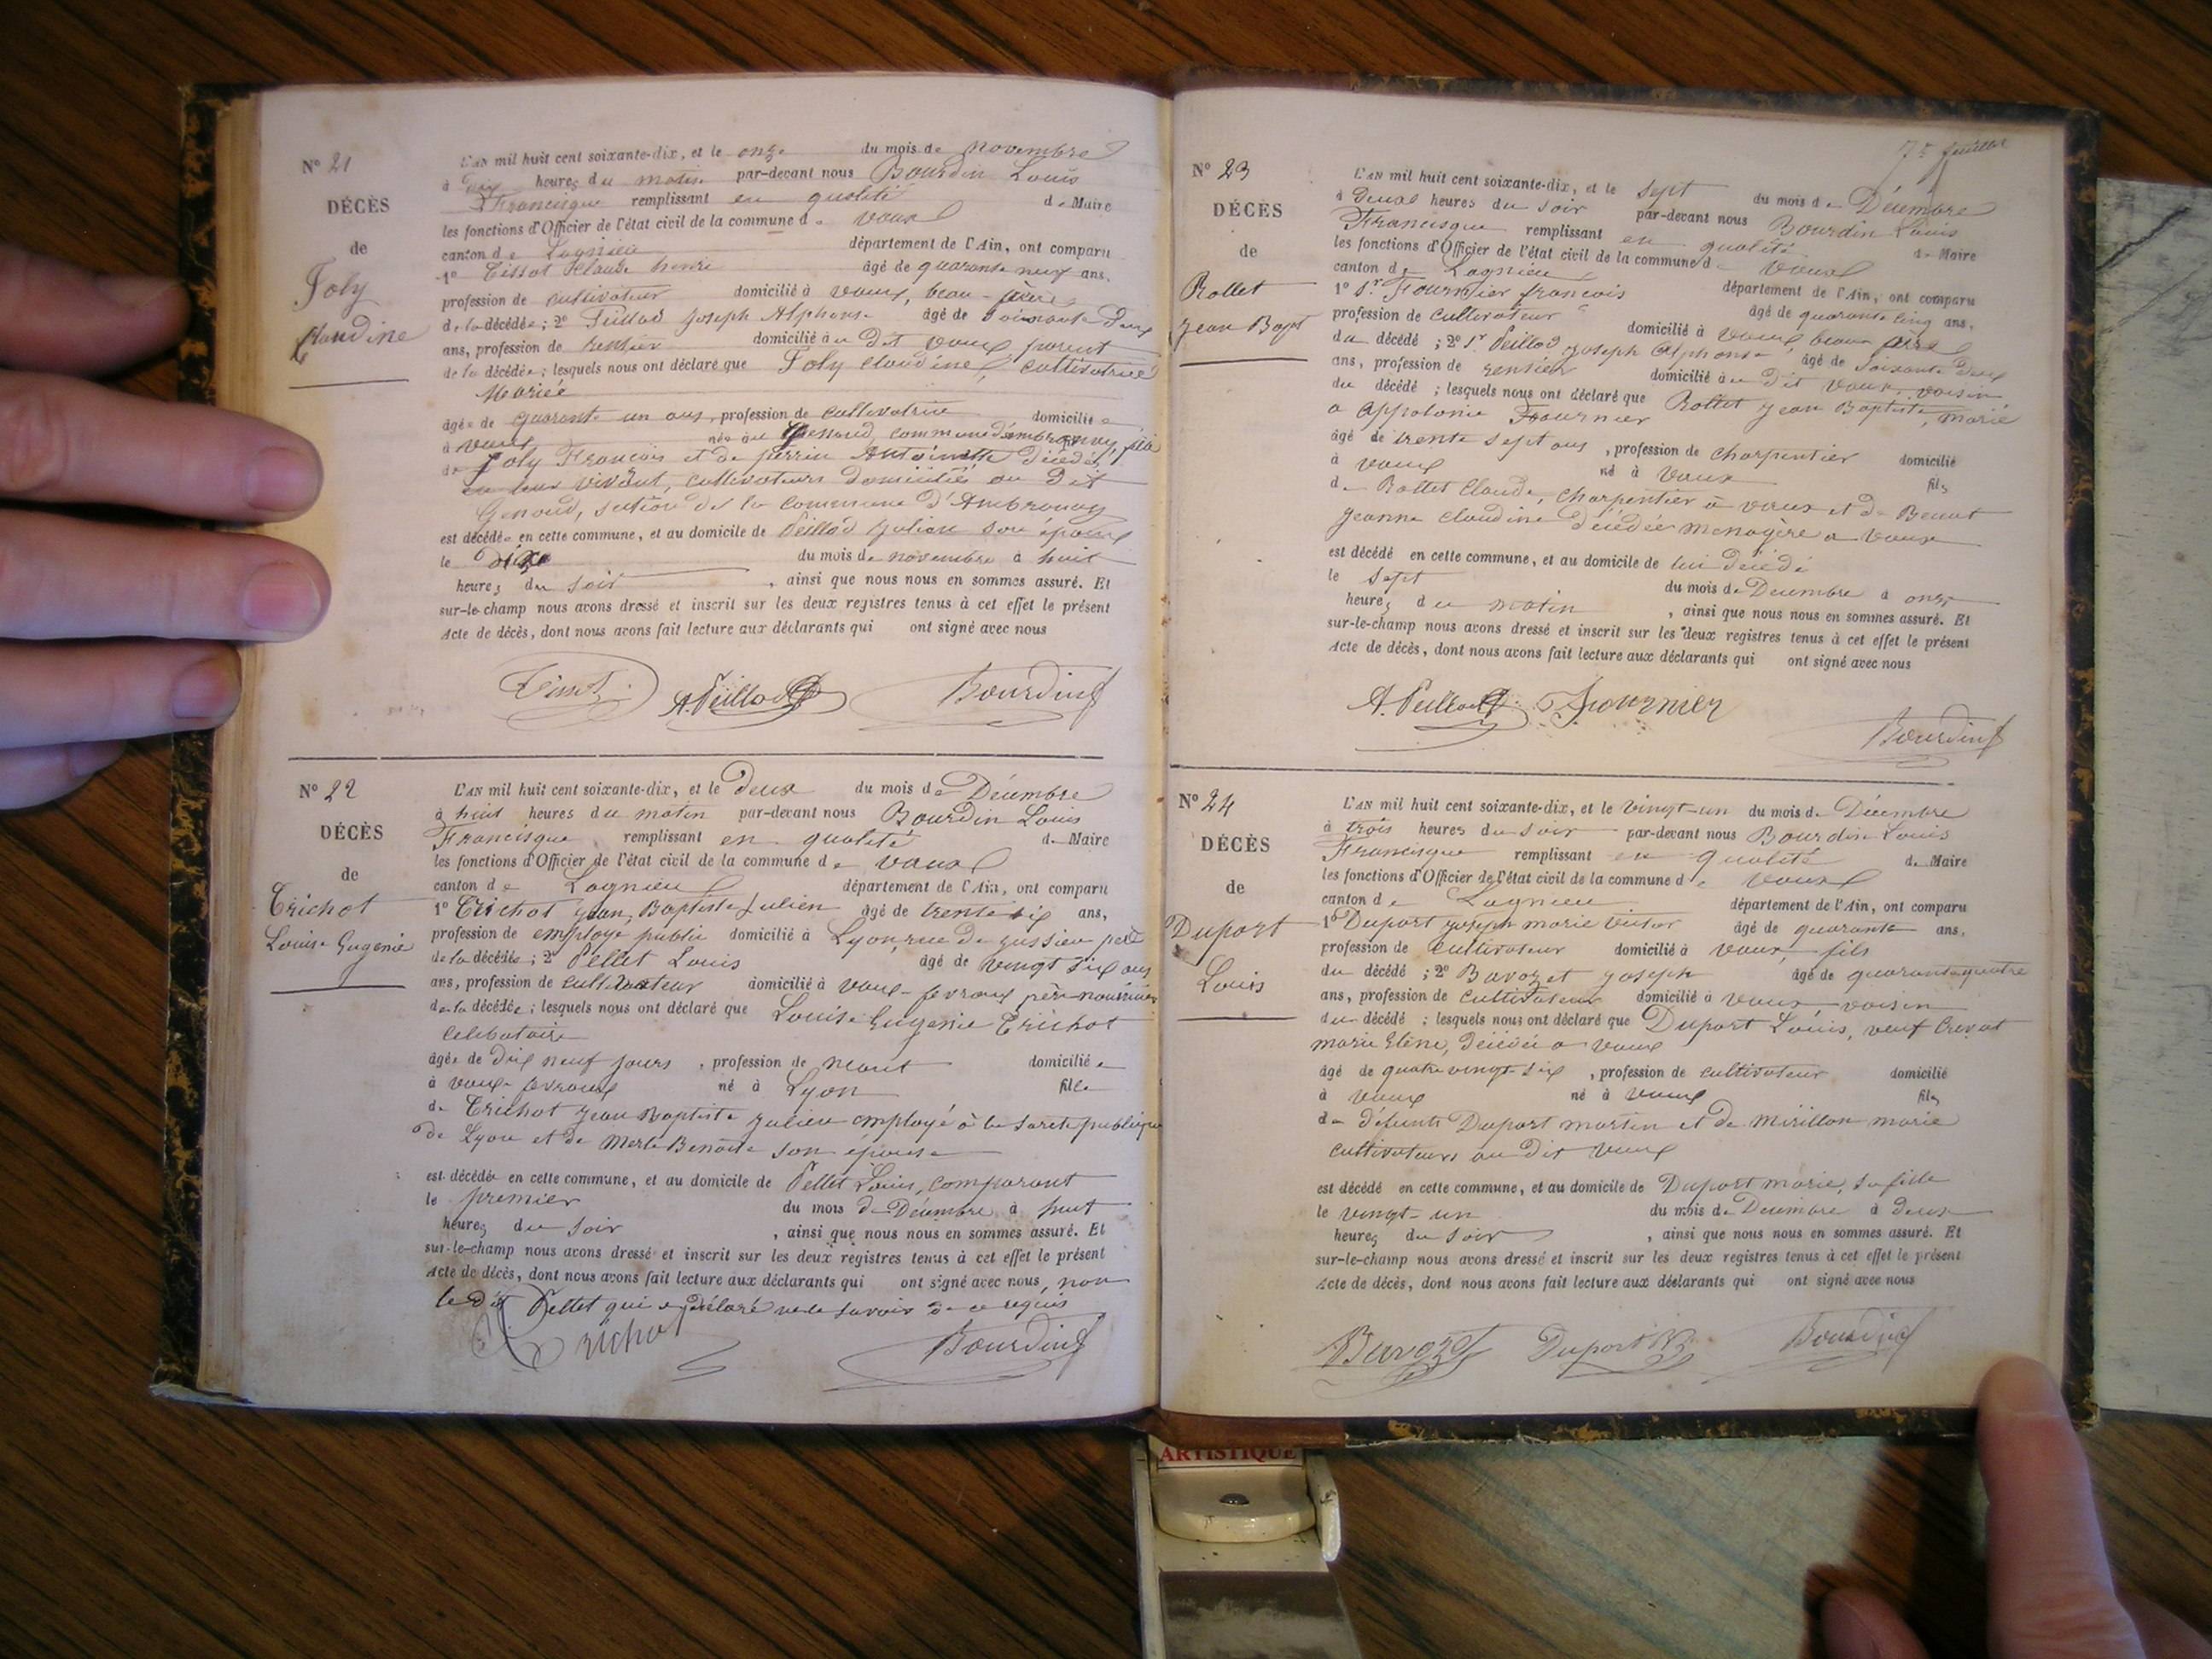 N° 21
DÉCÈS
de
Joly
Claudine
L'AN mil huit cent soixante-dix, et le onze du mois de novembre
à dix heures du matin par-devant nous Bourdin Louis
Francisque remplissant en qualité de Maire
les fonctions d'Officier de l'état civil de la commune de vaux
canton de Lagnieu département de l'Ain, ont comparu
1° Tissot Claude henri âgé de quarante neuf ans,
profession de cultivateur domicilié à vaux, beau-frère
de la décédée ; 2° Peillod Joseph Alphonse âgé de soixante deux
ans, profession de rentier domicilié au dit vaux parent
de la décédée ; lesquels nous ont déclaré que Joly claudine, cultivatrice
Mariée
âgée de quarante un ans, profession de cultivatrice domiciliée
à vaux née au Genoud, commune d'ambronay, fille
de Joly François et de perrin Antoinette décédés
en leur vivant, cultivateurs domiciliés au dit
Genoud, section de la commune d'Ambronay
est décédée en cette commune, et au domicile de Peillod Julien son époux
le dix du mois de novembre à huit
heures du soir , ainsi que nous nous en sommes assuré. Et
sur-le-champ nous avons dressé et inscrit sur les deux registres tenus à cet effet le présent
Acte de décès, dont nous avons fait lecture aux déclarants qui ont signé avec nous
Tissot A. Peillod Bourdin
N° 22
DÉCÈS
de
Trichot
Louise Eugénie
L'AN mil huit cent soixante-dix, et le Deux du mois de Décembre
à huit heures du matin par-devant nous Bourdin Louis
Francisque remplissant en qualité de Maire
les fonctions d'Officier de l'état civil de la commune de vaux
canton de Lagnieu département de l'Ain, ont comparu
1° Trichot Jean Baptiste Julien âgé de trente six ans,
profession de employé public domicilié à Lyon, rue de jussieu père
de la décédée ; 2° Pellet Louis âgé de vingt six ans
ans, profession de cultivateur domicilié à vaux-fevroux père nourricier
de la décédée ; lesquels nous ont déclaré que Louise Eugenie Trichot
celibataire
âgée de dix neuf jours , profession de néant domiciliée
à vaux fevroux né à Lyon fille
de Trichot Jean Baptiste Julien employé à la sureté publique
de Lyon et de Merle Benoite son épouse
est décédée en cette commune, et au domicile de Pellet Louis, comparant
le premier du mois de Décembre à huit
heures du soir , ainsi que nous nous en sommes assuré. Et
sur-le-champ nous avons dressé et inscrit sur les deux registres tenus à cet effet le présent
Acte de décès, dont nous avons fait lecture aux déclarants qui ont signé avec nous, non
le dit Pellet qui a déclaré ne le savoir de ce requis
Trichot Bourdin
7e feuillet
N° 23
DÉCÈS
de
Rollet
Jean Bapt
L'AN mil huit cent soixante-dix, et le sept du mois de Décembre
à deux heures du soir par-devant nous Bourdin Louis
Francisque remplissant en qualité de Maire
les fonctions d'Officier de l'état civil de la commune de vaux
canton de Lagnieu département de l'Ain, ont comparu
1° Sr Fournier francois âgé de quarante cinq ans,
profession de cultivateur domicilié à vaux beau père
du décédé ; 2° Sr Peillod Joseph Alphonse âgé de soixante deux
ans, profession de rentier domicilié au dit vaux, voisin
du décédé ; lesquels nous ont déclaré que Rollet Jean Baptiste, marié
a Appolonie Fournier
âgé de trente sept ans , profession de charpentier domicilié
à vaux né à vaux fils
de Rollet Claude, charpentier à vaux et de Benoit
Jeanne Claudine décédée menagère a vaux
est décédé en cette commune, et au domicile de lui décédé
le sept du mois de Décembre à onze
heures du matin , ainsi que nous nous en sommes assuré. Et
sur-le-champ nous avons dressé et inscrit sur les deux registres tenus à cet effet le présent
Acte de décès, dont nous avons fait lecture aux déclarants qui ont signé avec nous
A. Peillod Fournier
Bourdin
N° 24
DÉCÈS
de
Duport
Louis
L'AN mil huit cent soixante-dix, et le vingt-un du mois de Décembre
à trois heures du soir par-devant nous Bourdin Louis
Francisque remplissant en qualité de Maire
les fonctions d'Officier de l'état civil de la commune de vaux
canton de Lagnieu département de l'Ain, ont comparu
1° Duport Joseph marie victor âgé de quarante ans,
profession de cultivateur domicilié à vaux, fils
du décédé ; 2° Bavozet Joseph âgé de quarante quatre
ans, profession de cultivateur domicilié à vaux voisin
du décédé ; lesquels nous ont déclaré que Duport Louis, veuf Crevat
marie Elène, décédée a vaux
âgé de quatre vingt-six , profession de cultivateur domicilié
à vaux né à vaux fils
de défunts Duport martin et de mirillon marie
cultivateurs au dit vaux
est décédé en cette commune, et au domicile de Duport marie, sa fille
le vingt-un du mois de Decembre à deux
heures du soir , ainsi que nous nous en sommes assuré. Et
sur-le-champ nous avons dressé et inscrit sur les deux registres tenus à cet effet le présent
Acte de décès, dont nous avons fait lecture aux déclarants qui ont signé avec nous
Bavozet Duport Bourdin
ARTISTIQUE